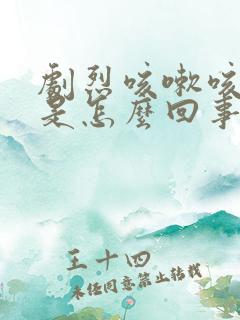 劇烈咳嗽咳
是怎麼回事
王十四
未經同意禁止轉載